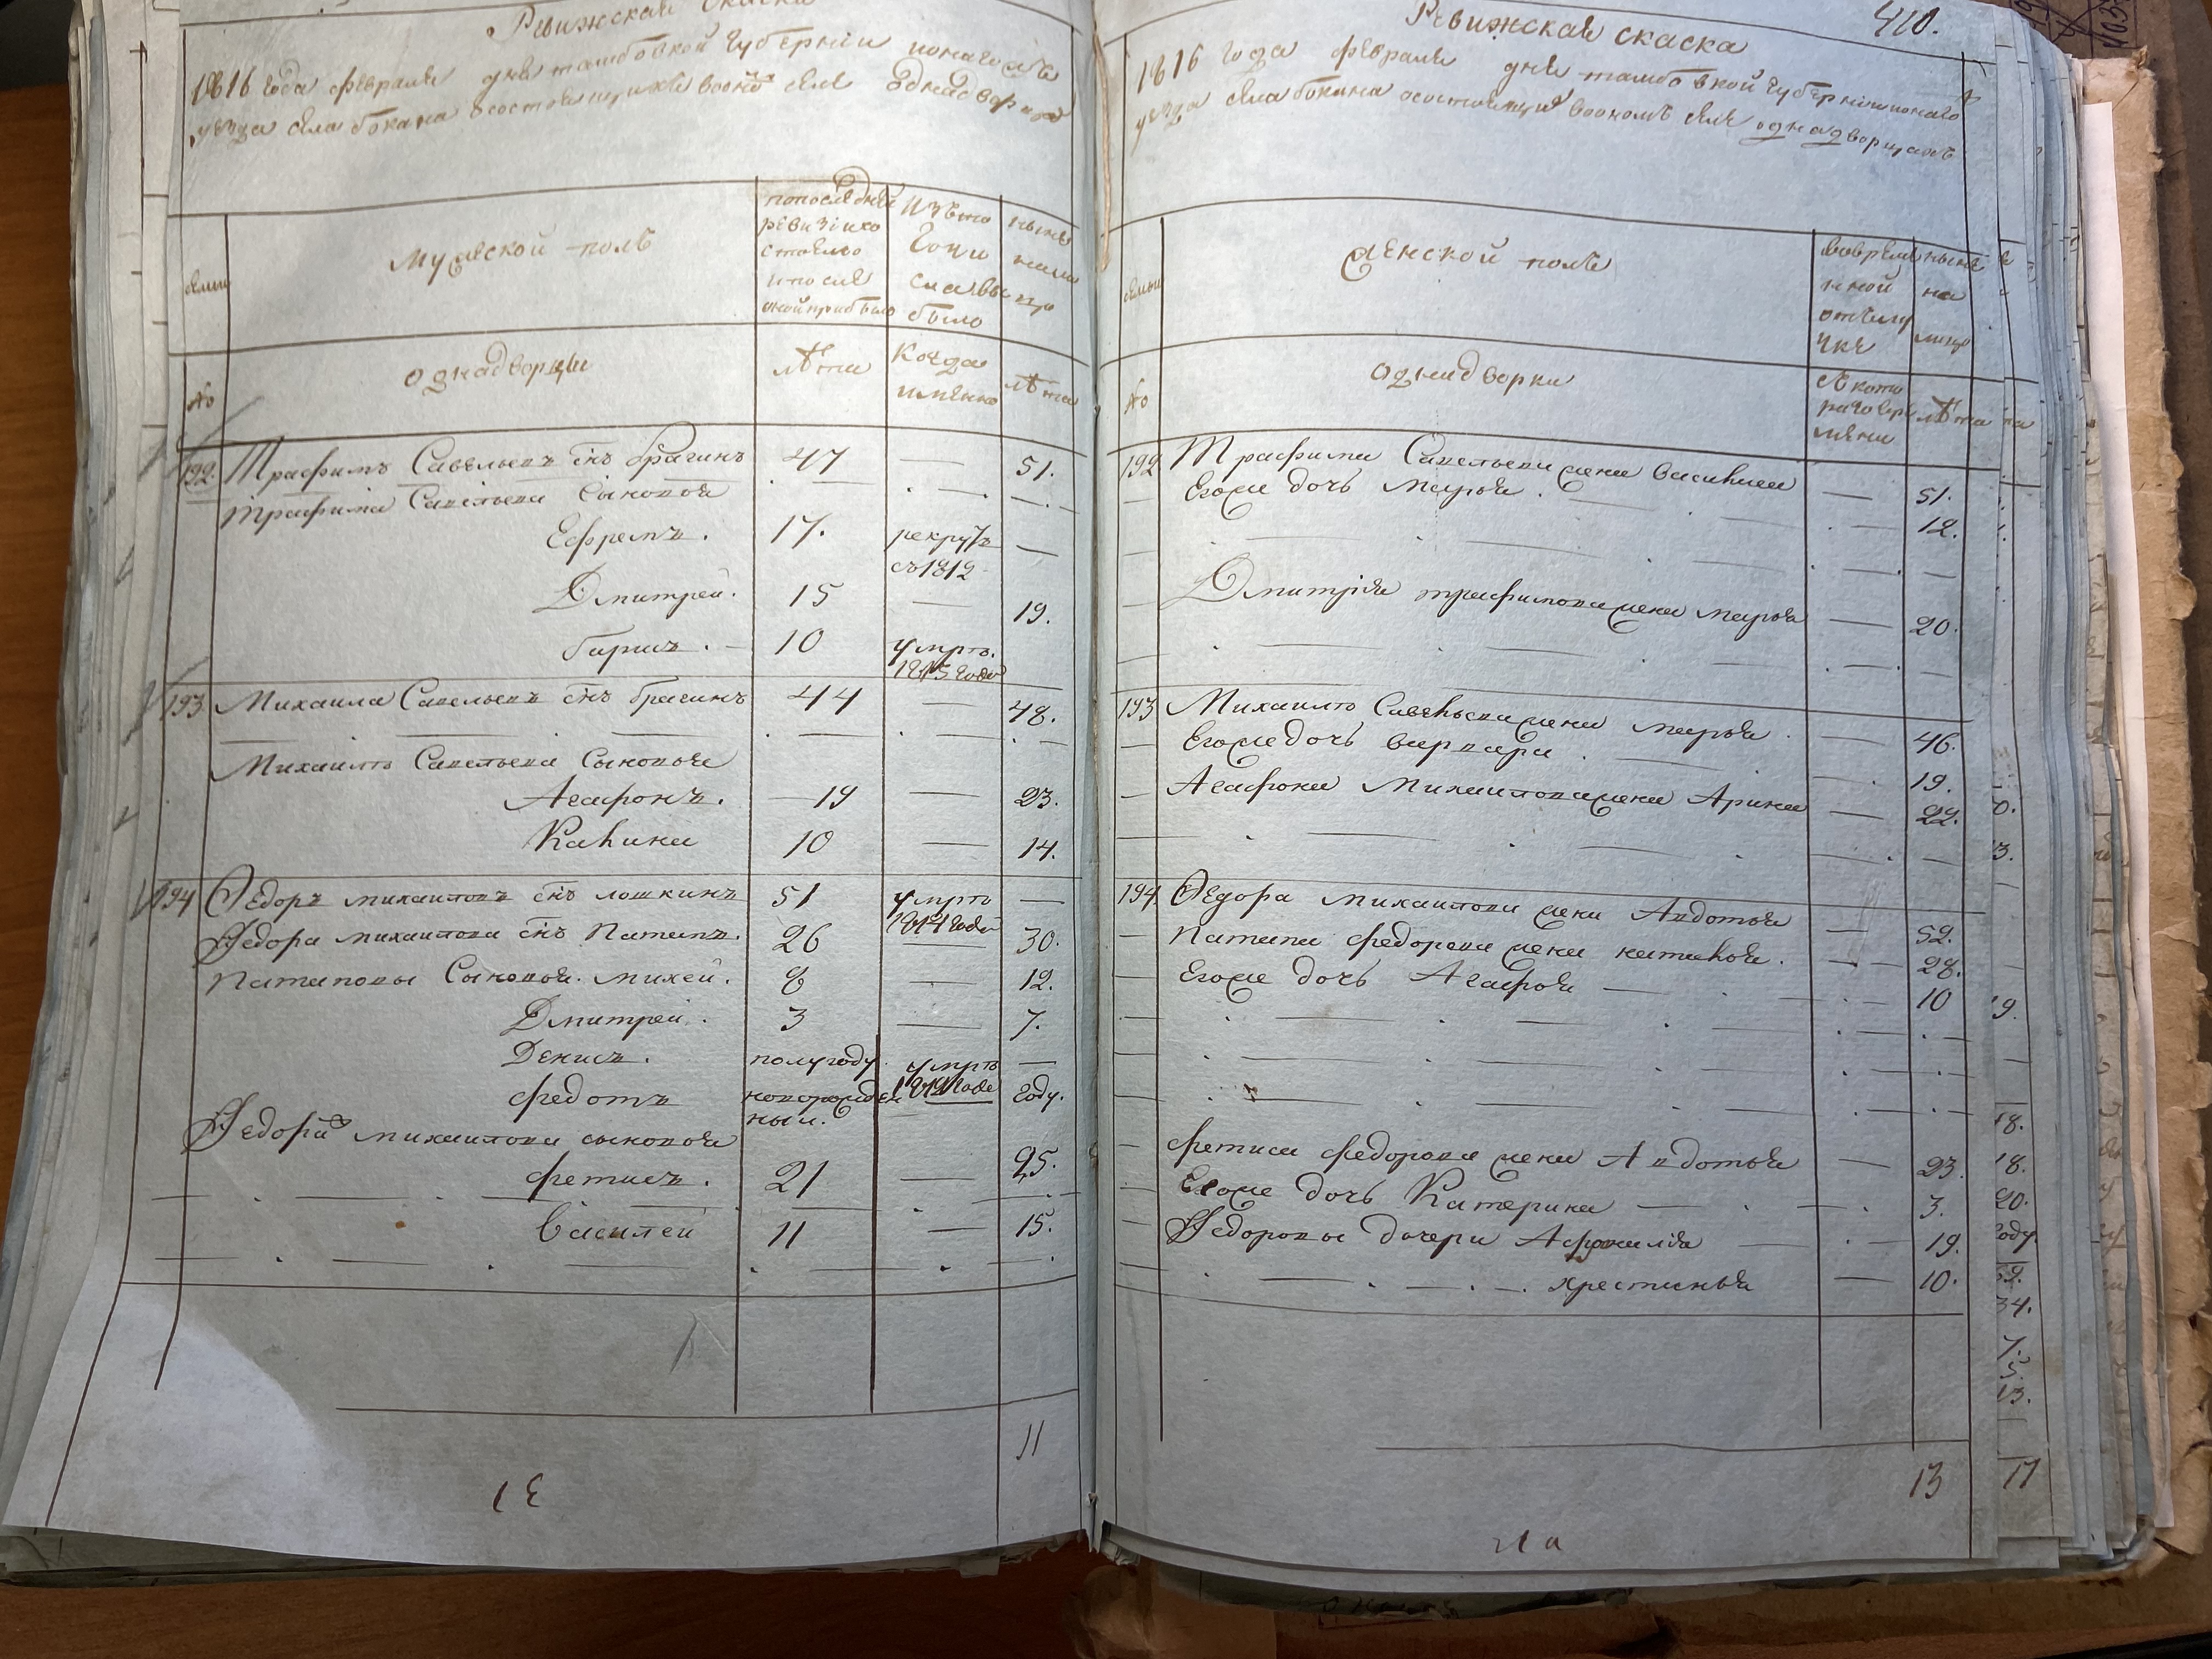 Ревижская скаска
1816 года февраля дня тамбовской губернии
уезда села бокина осостоящихъ воономъ селе однадворцахъ
мужеской полъ
попоследней
ревизіи со
стояло
ипосле
оной прибыло
изъ того
числа вы
было
ныне
налицо
однадворцы
№
лѣта
когда
имянно
лѣта
192. Трафимъ Савельевъ снъ брагинъ 47 — 51.
трафима Савельева Сыновья
Ефремъ. 17. рекрутъ —
съ 1812
Дмитрей. 15 — 19.
барисъ. 10 умръ.
1815 года
193 Михаила Савельевъ снъ брагинъ 44 — 48.
Михаилы Савельева Сыновья
Агафонъ. 19 — 23.
Калина 10 — 14.
194 Федоръ михаиловъ снъ лошкинъ 51 умръ —
1814 года
Федора михаилова снъ Патапъ. 26 — 30.
Патаповы Сыновья. михей. 8 — 12.
Дмитрей. 3 — 7.
Денисъ. полугоду умръ —
федотъ новорожден году.
ный.
Федора михаилова сыновья
фетисъ. 21 — 25.
Василей 11 — 15.
11
Ревижская скаска
410.
1816 года февраля дня тамбовской губернии
уезда села бокина осостоящихъ воономъ селе однадворцахъ
женской полъ
ныне
на
лицо
№
однадворки
лѣта
192 Трафима Савельева жена Василиса — 51.
Егоже дочь марья. 12.
Дмитрия трафимова жена марья — 20.
193 Михаилы Савельева жена марья. — 46.
Егоже дочь варвара. 19.
Агафона Михаилова жена Арина — 22.
194 Федора михаилова жена Авдотья — 52.
Патапа федорова жена наталья. — 28.
Егоже дочь Агафья — 10
фетиса федорова жена Авдотья — 23.
Егоже дочь Катерина — 3.
Федоровы дочери — 19.
хрестинья — 10.
13
17